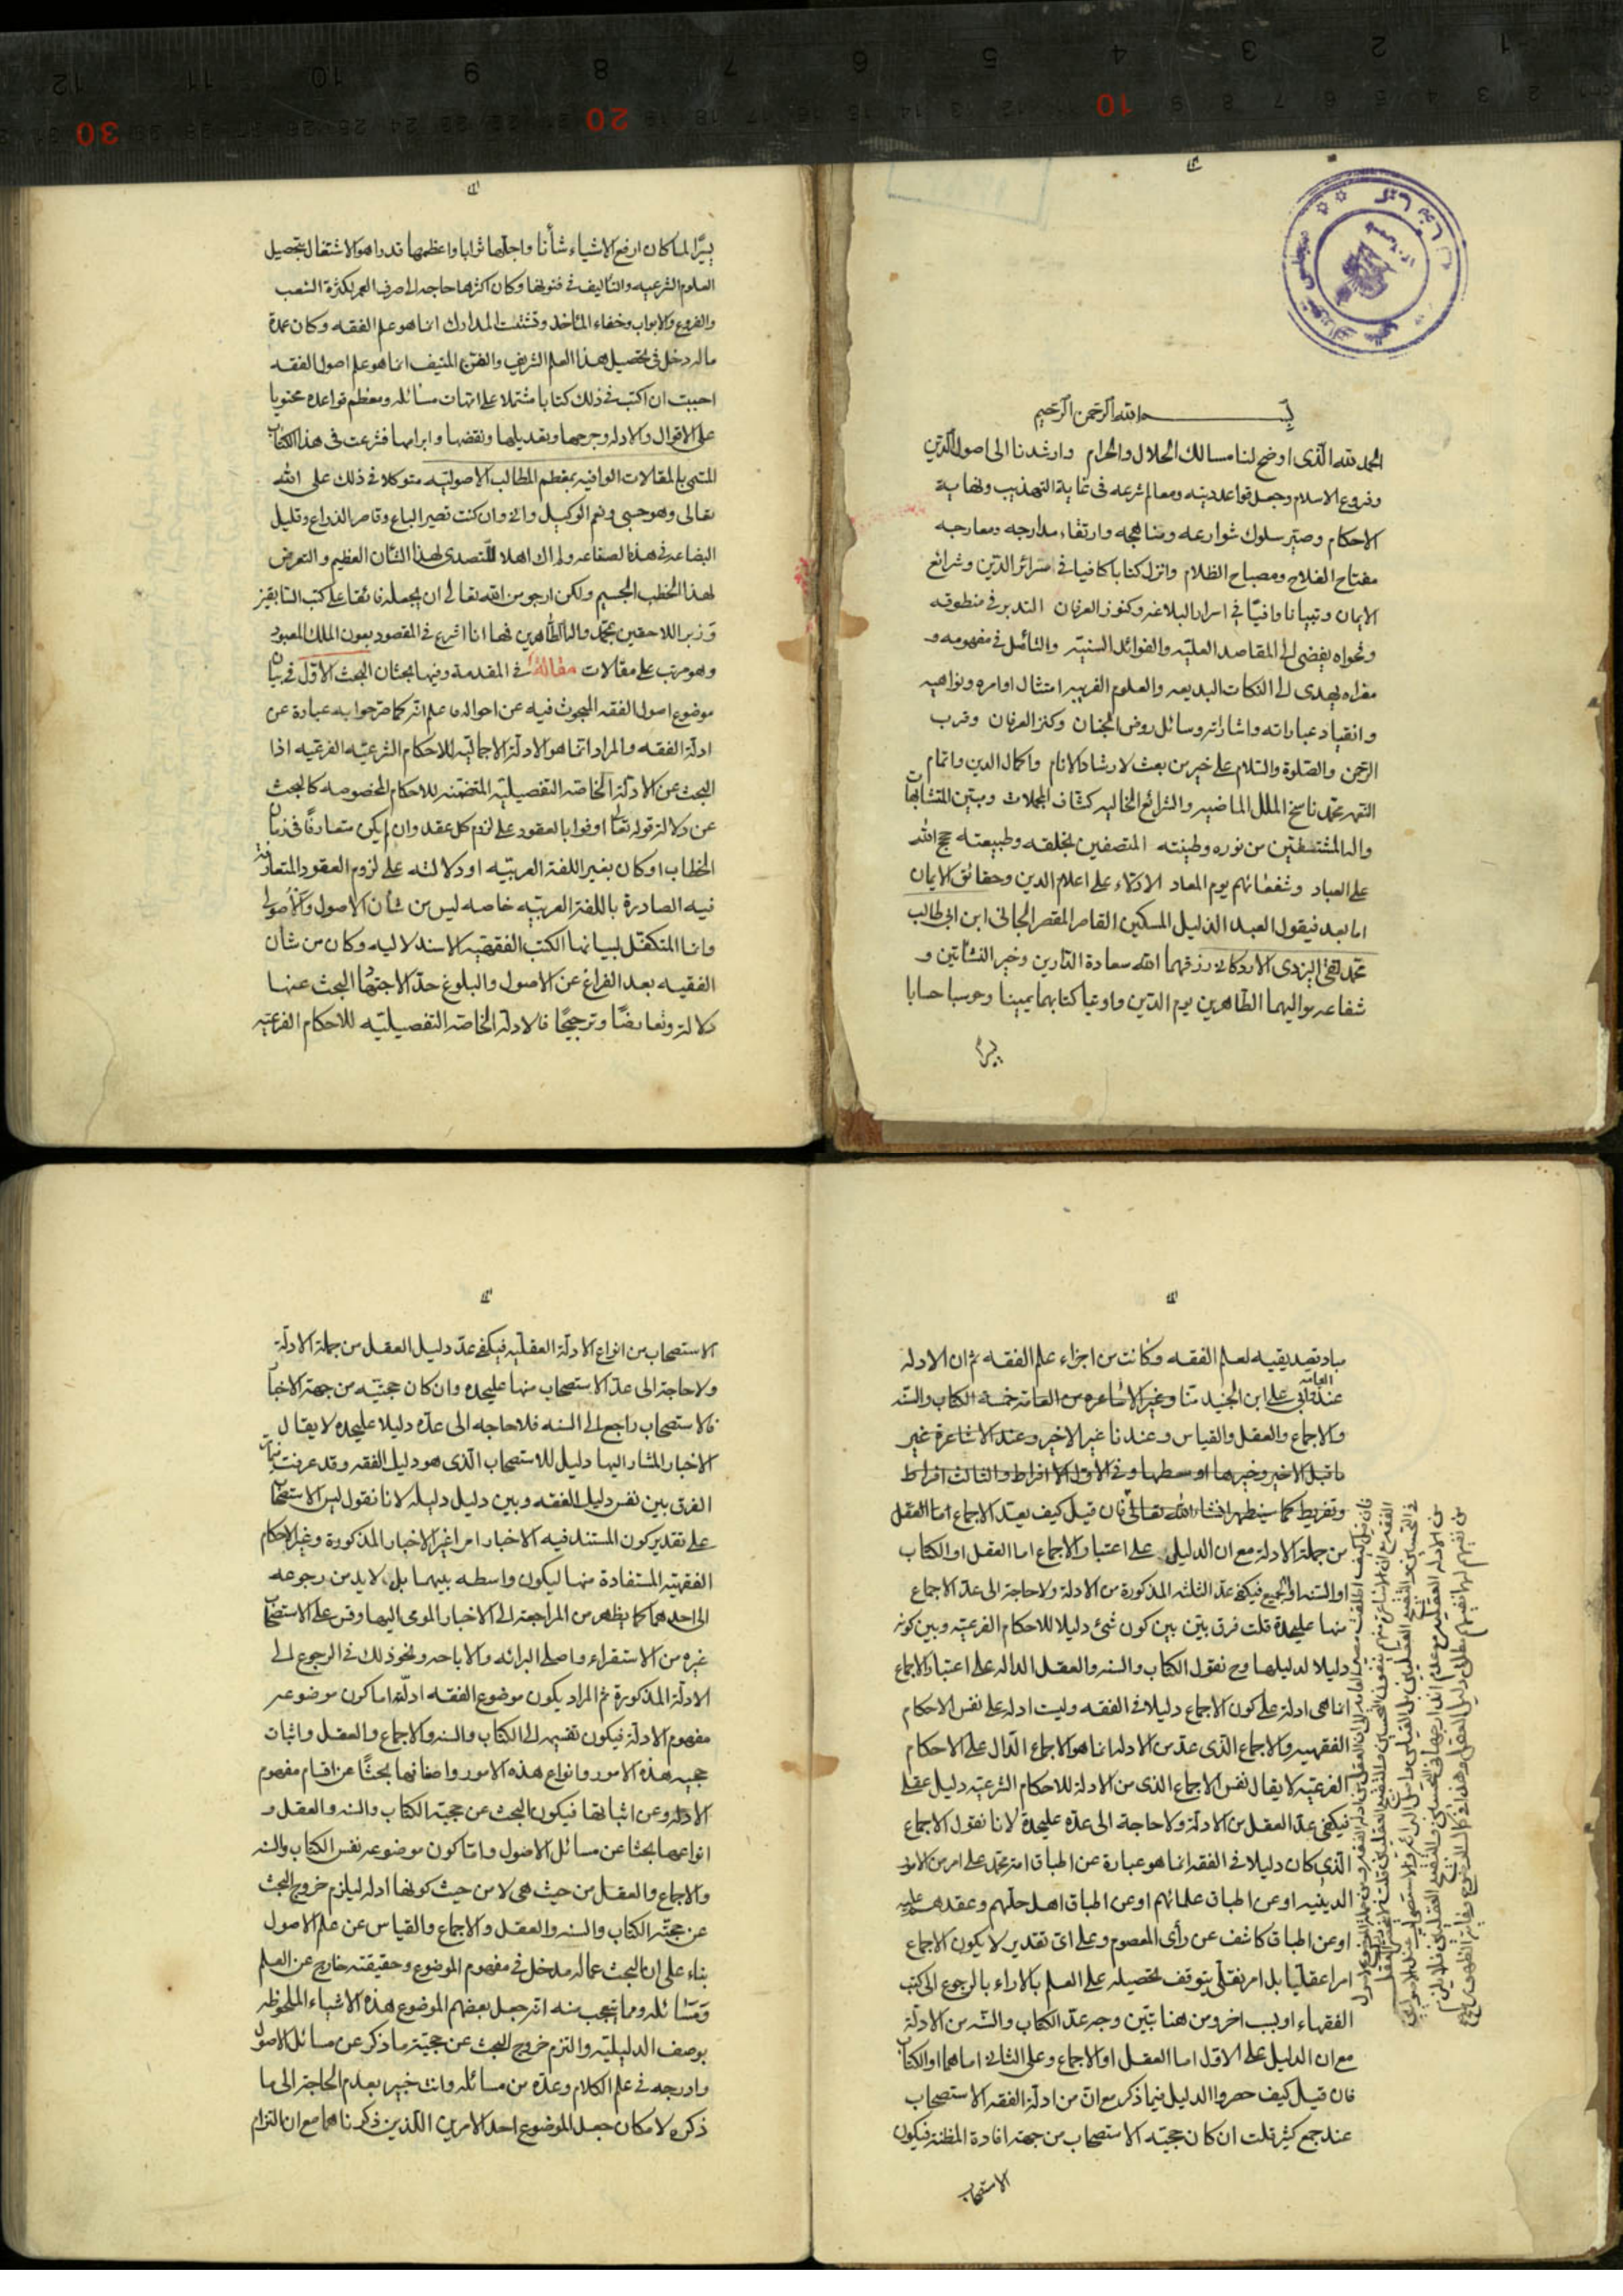 بسم الله الرحمن الرحيم
الحمد لله الذى اوضح لنا مسالك الحلال والحرام وارشدنا الى اصول الدين
وفروع الاسلام وجعل قواعد دينه ومعالم شرعه فى غاية التهذيب ونهاية
الاحكام وصير سلوك شوارعه ومناهجه وارتقاء مدارجه ومعارجه
مفتاح الفلاح ومصباح الظلام وانزل كتابا كافيا فى سرائر الدين وشرائع
الايمان وتبيانا وافيا فى اسرار البلاغه وكنوز العرفان التدبر فى منطوقه
وفحواه يفضى الى المقاصد العليه والفوائد السنيه والتامل فى مفهومه و
مغزاه يهدى الى النكات البديعه والعلوم الغريبه امتثال اوامره ونواهيه
وانقياد عباراته واشاراته وسائل روض الجنان وكنز العرفان وقرب
الرحمن والصلوة والسلام على خير من بعث لارشاد الانام واكمال الدين واتمام
محمد ناسخ الملل الماضيه والشرائع الخاليه كشاف المجملات ومبين المتشابهات
واله من نوره وطينته المتصفين بخلقه وطبيعته حجج الله
على العباد وشفعائهم يوم المعاد الادلاء على اعلام الدين وحقائق الايمان
اما بعد فيقول العبد الذليل المسكين القاصر المقصر الجانى ابن ابى طالب
محمد تقى اليزدى الاردكانى رزقهما الله سعادة الدارين وخير النشاتين و
شفاعه مواليهما الطاهرين يوم الدين واوتيا كتابهما يمينا وحوسبا حسابا
يسيرا
يسيرا لما كان ارفع الاشياء شأنا واجلها ثوابا واعظمها قدرا هو الاشتغال بتحصيل
العلوم الشرعيه والتاليف فى فنونها وكان اكثرها حاجه الى صرف العمر لكثرة الشعب
والفروع والابواب وخفاء المآخذ وتشتت المدارك انما هو علم الفقه وكان عمدة
ماله دخل فى تحصيل هذا العلم الشريف والفن المنيف انما هو علم اصول الفقه
احببت ان اكتب فى ذلك كتابا مشتملا على امهات مسائله ومعظم قواعده محتويا
على الاقوال والادله وجرحها وتعديلها ونقضها وابرامها فشرعت فى هذا الكتاب
المسمى بالمقالات الوافيه بمعظم المطالب الاصوليه متوكلا فى ذلك على الله
تعالى وهو حسبى ونعم الوكيل وانى وان كنت قصير الباع وقاصر الذراع وقليل
البضاعه فى هذه الصناعه ولم اك اهلا للتصدى لهذا الشأن العظيم والتعرض
لهذا الخطب الجسيم ولكن ارجو من الله تعالى ان يجعله فائقا على كتب السابقين
وزبر اللاحقين بمحمد واله الطاهرين فها انا اشرع فى المقصود بعون الملك المعبود
وهو مرتب على مقالات مقالة فى المقدمة وفيها بحثان البحث الاول فى بيان
موضوع اصول الفقه المبحوث فيه عن احواله فاعلم انه كما صرحوا به عبارة عن
ادلة الفقه والمراد انما هو الادلة الاجماليه للاحكام الشرعيه الفرعيه اذا
البحث عن الادلة الخاصه التفصيليه المتضمنه للاحكام المخصوصه كالبحث
عن دلالة قوله تعالى اوفوا بالعقود على لزوم كل عقد وان لم يكن متعارفا فى زمان
الخطاب او كان بغير اللغة العربيه او دلالته على لزوم العقود المتعارفة
فيه الصادرة باللغة العربيه خاصه ليس من شأن الاصول والاصولى
وانما المتكفل لبيانها الكتب الفقهيه الاستدلاليه وكان من شأن
الفقيه بعد الفراغ عن الاصول والبلوغ حد الاجتهاد البحث عنها
دلالة وتعارضا وترجيحا فالادلة الخاصه التفصيليه للاحكام الفرعيه
مباد تصديقيه لعلم الفقه وكانت من اجزاء علم الفقه ثم ان الادله
العامه
على ابن الجنيد منا وغير الاشاعره من العامه خمسة الكتاب والسنه
والاجماع والعقل والقياس وعندنا غير الاخير وعند الاشاعرة غير
ما قبل الاخير وخيرها اوسطها وفى الاول الافراط والثالث افراط
وتفريط كما سيظهر انشاء الله تعالى فان قيل كيف يعد الاجماع اما العقل
من جملة الادلة مع ان الدليل على اعتبار الاجماع اما العقل او الكتاب
او السنه او الجميع فيكفى عد الثلثه المذكورة من الادلة ولا حاجة الى عد الاجماع
منها عليحدة قلت فرق بين بين كون شئ دليلا للاحكام الفرعيه وبين كونه
دليلا لدليلها وح نقول الكتاب والسنه والعقل الداله على اعتبار الاجماع
انما هى ادلة على كون الاجماع دليلا فى الفقه وليست ادلة على نفس الاحكام
الفقهيه والاجماع الذى عد من الادله انما هو الاجماع الدال على الاحكام
الفرعيه لا يقال نفس الاجماع الذى من الادلة للاحكام الشرعيه دليل عقلى
فيكفى عد العقل من الادلة ولا حاجة الى عده عليحدة لانا نقول الاجماع
الذى كان دليلا فى الفقه انما هو عبارة عن اطباق امة محمد على امر من الامور
الدينيه او عن اطباق علمائهم او عن اطباق اهل حلهم وعقدهم عليه
او عن اطباق كاشف عن رأى المعصوم وعلى اى تقدير لا يكون الاجماع
امرا عقليا بل امر نقلى يتوقف تحصيله على العلم بالاراء بالرجوع الى كتب
الفقهاء او بسبب اخر ومن هنا تبين وجه عد الكتاب والسنه من الادلة
مع ان الدليل على الاول اما العقل او الاجماع وعلى الثانى اما هما او الكتاب
فان قيل كيف حصروا الدليل فيما ذكر مع ان من ادلة الفقه الاستصحاب
عند جمع كثير قلت ان كان حجيه الاستصحاب من جهة افادة المظنه فيكون
الاستصحاب
الاستصحاب من انواع الادلة العقليه فيكفى عد دليل العقل من جملة الادلة
ولا حاجة الى عد الاستصحاب منها عليحده وان كان حجيته من جهة الاخبار
فالاستصحاب راجع الى السنه فلا حاجه الى عده دليلا عليحده لا يقال
الاخبار المشار اليها دليل للاستصحاب الذى هو دليل الفقه وقد عرفت
الفرق بين نفس دليل الفقه وبين دليل دليله لانا نقول ليس الاستصحاب
على تقدير كون المستند فيه الاخبار امرا غير الاخبار المذكورة وغير الاحكام
الفقهيه المستفادة منها ليكون واسطه بينهما بل لابد من رجوعه
الى احدهما كما يظهر من المراجعة الى الاخبار المومى اليها وقس على الاستصحاب
غيره من الاستقراء واصل البرائه والاباحه ونحو ذلك فى الرجوع الى
الادلة المذكورة ثم المراد بكون موضوع الفقه ادلته اما كون موضوعه
مفهوم الادلة فيكون تقسيمه الى الكتاب والسنه والاجماع والعقل واثبات
حجيه هذه الامور وانواع هذه الامور واصنافها بحثا عن اقسام مفهوم
الادله وعن اثباتها فيكون البحث عن حجيه الكتاب والسنه والعقل و
انواعها بحثا عن مسائل الاصول واما كون موضوعه نفس الكتاب والسنه
والاجماع والعقل من حيث هى لا من حيث كونها ادله ليلزم خروج البحث
عن حجيه الكتاب والسنه والعقل والاجماع والقياس عن علم الاصول
بناء على ان البحث عما له مدخل فى مفهوم الموضوع وحقيقته خارج عن العلم
ومسائله ومما يتعجب منه انه جعل بعضهم الموضوع هذه الاشياء الملحوظه
بوصف الدليليه والتزم خروج البحث عن حجيه ما ذكر عن مسائل الاصول
وادرجه فى علم الكلام وعده من مسائله وانت خبير بعدم الحاجة الى ما
ذكره لامكان جعل الموضوع احد الامرين اللذين ذكرناهما مع ان التزام